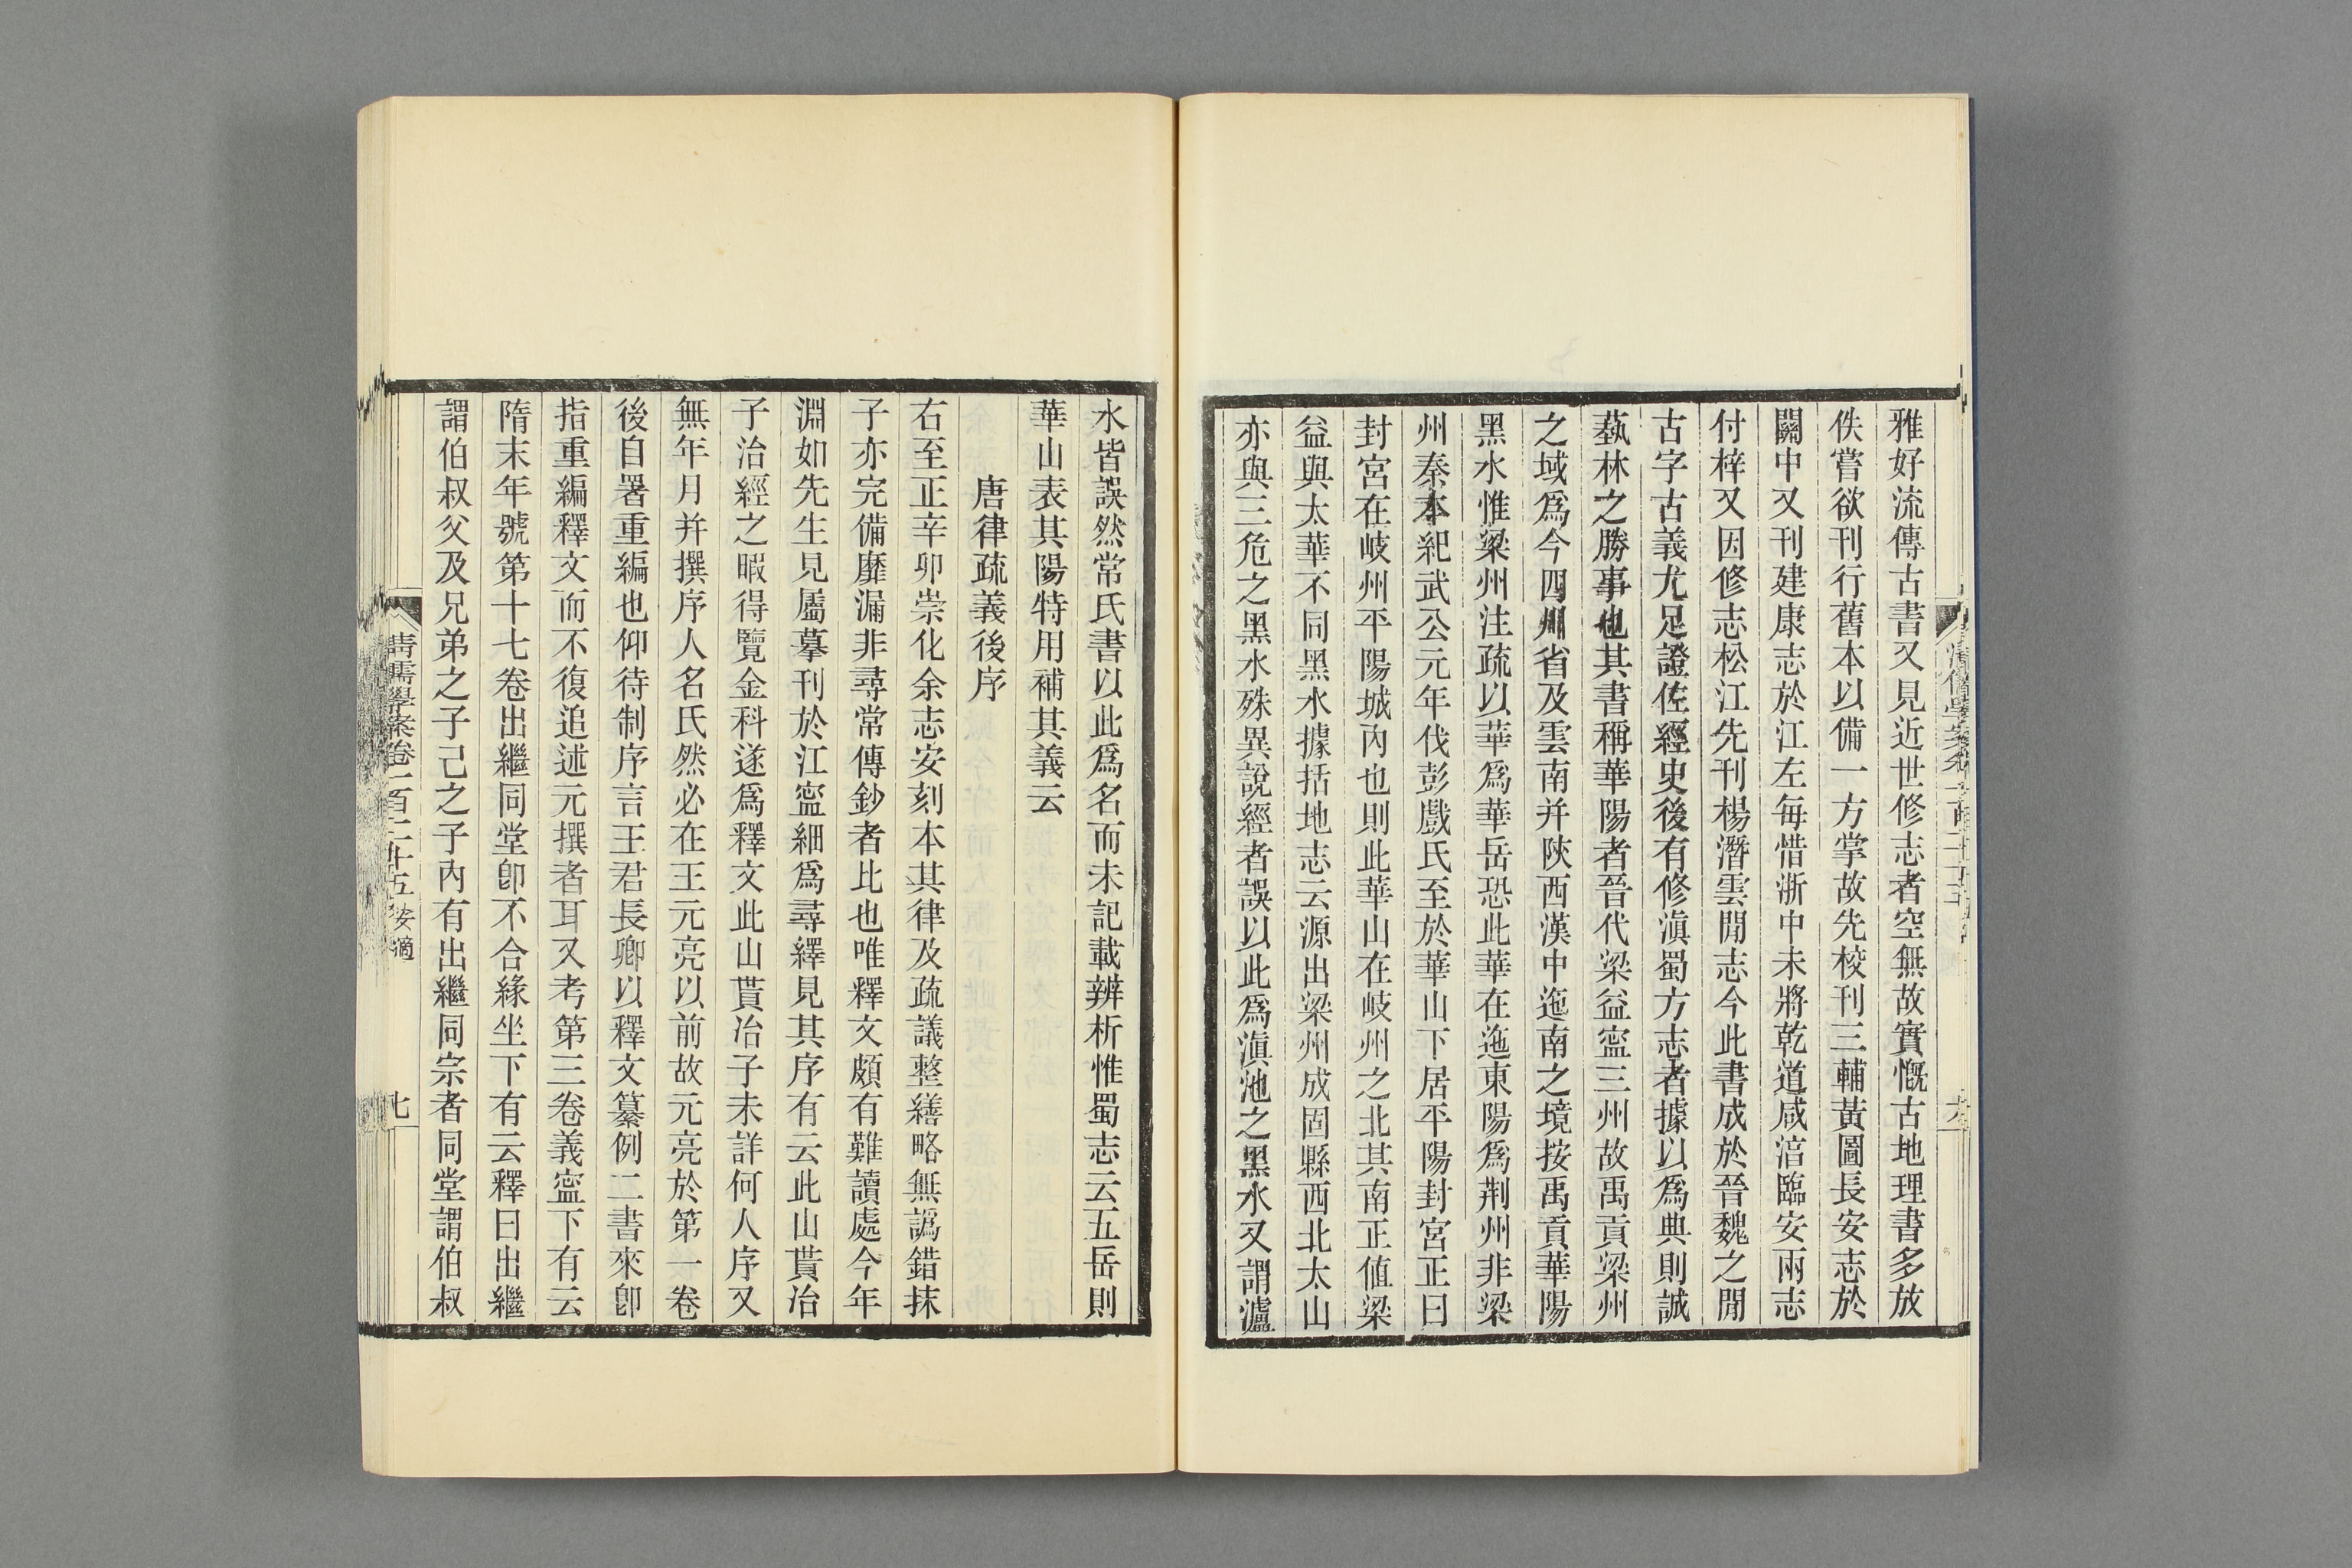 雅好流傳古書又見近世修志者空無故實慨古地理書多放
佚嘗欲刊行舊本以備一方掌故先校刊三輔黃圖長安志於
關中又刊建康志於江左每惜浙中未將乾道咸湻臨安兩志
付梓又因修志松江先刊楊潛雲閒志今此書成於晉魏之閒
古字古義尤足證佐經史後有修滇蜀方志者據以爲典則誠
蓺林之勝事也其書稱華陽者晉代梁益寍三州故禹貢梁州
之域爲今四川省及雲南并陝西漢中迤南之境按禹貢華陽
黑水惟梁州注疏以華爲華岳恐此華在迤東陽爲荆州非梁
州秦本紀武公元年伐彭戲氏至於華山下居平陽封宮正曰
封宮在岐州平陽城內也則此華山在岐州之北其南正値梁
益與太華不同黑水據括地志云源出梁州成固縣西北太山
亦與三危之黑水殊異說經者誤以此爲滇池之黑水又謂瀘
水皆誤然常氏書以此爲名而未記載辨析惟蜀志云五岳則
華山表其陽特用補其義云
唐律疏義後序
右至正辛卯崇化余志安刻本其律及疏議整繕略無譌錯抹
子亦完備靡漏非尋常傳鈔者比也唯釋文頗有難讀處今年
淵如先生見屬摹刊於江寍細爲尋繹見其序有云此山貰冶
子治經之暇得覽金科遂爲釋文此山貰冶子未詳何人序又
無年月并撰序人名氏然必在王元亮以前故元亮於第一卷
後自署重編也仰待制序言王君長卿以釋文纂例二書來卽
指重編釋文而不復追述元撰者耳又考第三卷義寍下有云
隋末年號第十七卷出繼同堂卽不合緣坐下有云釋曰出繼
謂伯叔父及兄弟之子己之子內有出繼同宗者同堂謂伯叔
清儒學案卷一百二十五 安適 七